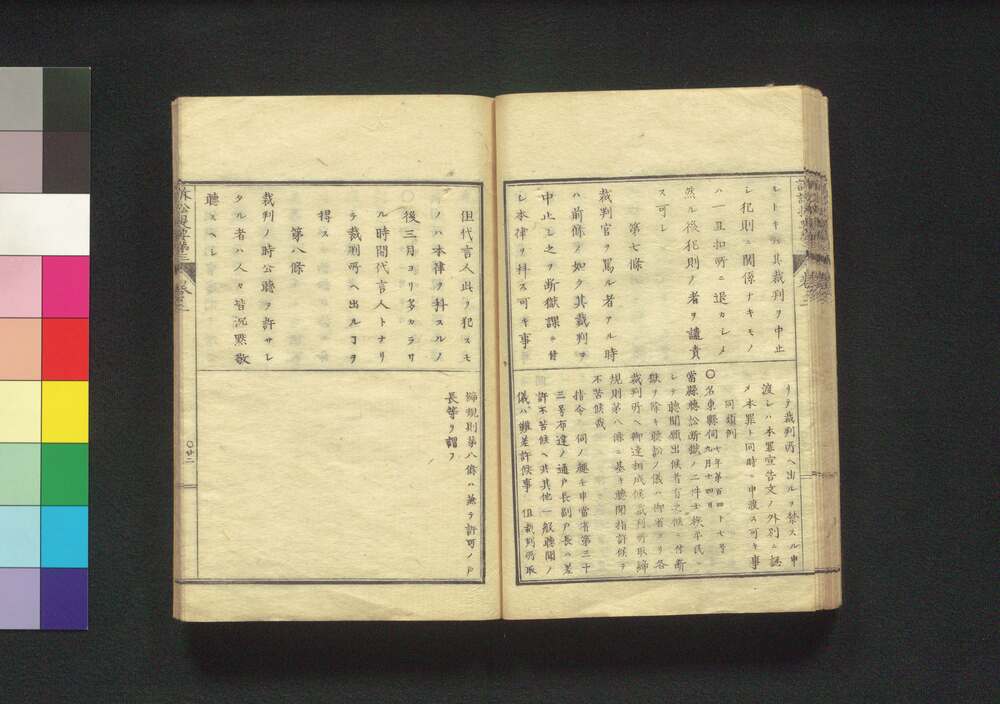 レトキハ其裁判ヲ中止
シ犯則ニ関係ナキモノ
ハ一旦扣所ニ退カシメ
然ル後犯則ノ者ヲ譴責
ス可シ
第七條
裁判官ヲ罵ル者アル時
ハ前條ノ如ク其裁判ヲ
中止シ之ヲ断獄課ニ付
シ本律ヲ科ス可キ事
リテ裁判所ヘ出ルヲ禁スル申
渡シハ本罪宣告文ノ外別ニ認
メ本罪ト同時ニ申渡ス可キ事
同類例
〇名東縣伺 七年第百四十七号 九月十四日
當縣聴訟断獄ノ二件士族平民ニ
シテ聴聞願出候者有之候ニ付断
獄ヲ除キ聴訟ノ儀ハ御省ヨリ各
裁判所ヘ御達相成候裁判所取締
規則第八條ニ基キ聴聞指許候テ
不苦候哉
指令 伺ノ趣キ申當省第三十
三号布達ノ通戸長副戸長ハ差
許不苦候ヘ共其他一般聴聞ノ
儀ハ難差許候事 但裁判所取
但代言人此ヲ犯スモ
ノハ本律ヲ科スルノ
後三月ヨリ多カラサ
ル時間代言人トナリ
テ裁判所ヘ出ルヿヲ
得ス
第八條
裁判ノ時公聴ヲ許サレ
タル者ハ人々皆沉黙敬
聴スヘシ
締規則第八條ハ兼テ許可ノ戸
長等ヲ謂フ
〇廿二